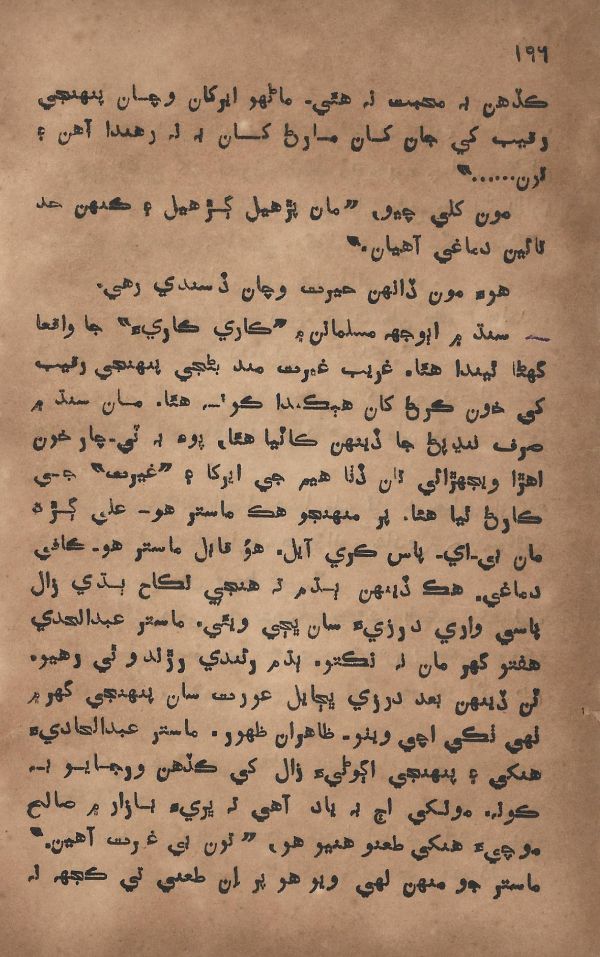 ١٩٦
ڪڏهن به محبت نه هئي. ماڻهو ايرکان وچان پنهنجي
رقيب کي جان کان مارڻ کان به نه رهندا آهن ۽
تون......"
مون کلي چيو، "مان پڙهيل ڳڙهيل ۽ ڪنهن حد
تائين دماغي آهيان."
هوءَ مون ڏانهن حيرت وچان ڏسندي رهي.
سنڌ ۾ اٻوجهه مسلمانن ۾ "ڪاري ڪاريءَ" جا واقعا
گهڻا ٿيندا هئا. غريب غيرت مند بڻجي پنهنجي رقيب
کي خون ڪرڻ کان هٻڪندا ڪونه هئا. مان سنڌ ۾
صرف ننڍپڻ جا ڏينهن ڪاٽيا هئا، پوءِ به ٽي-چار خون
اهڙا ويجهڙائي تان ڏٺا هيم جي ايرکا ۽ "غيرت" جي
ڪارڻ ٿيا هئا. پر منهنجو هڪ ماستر هو- علي ڳڙهه
مان بي-اي- پاس ڪري آيل. هوُ قابل ماستر هو- ڪافي
دماغي. هڪ ڏينهن ٻڌم ته هنجي نڪاح ٻڌي زال
پاسي واري درزيءَ سان ڀڄي ويئي. ماستر عبدالهدي
هفتو گهر مان نه نڪتو. ٻڌم رئندي رڙندو ٿي رهيو.
ٽن ڏينهن بعد درزي ڀڄايل عورت سان پنهنجي گهر ۾
ٺهي ٺڪي اچي ويٺو- ظاهران ظهور. ماستر عبدالهاديءَ
هنکي ۽ پنهنجي اڳوڻيءَ زال کي ڪڏهن ورجايو به
ڪونه. مونکي اڄ به ياد آهي ته ڀريءَ بازار ۾ صالح
موچيءَ هنکي طعنو هنيو هو، "تون بي غرت آهين."
ماستر جو منهن لهي ويو هو پر اِن طعني تي ڪجهه نه